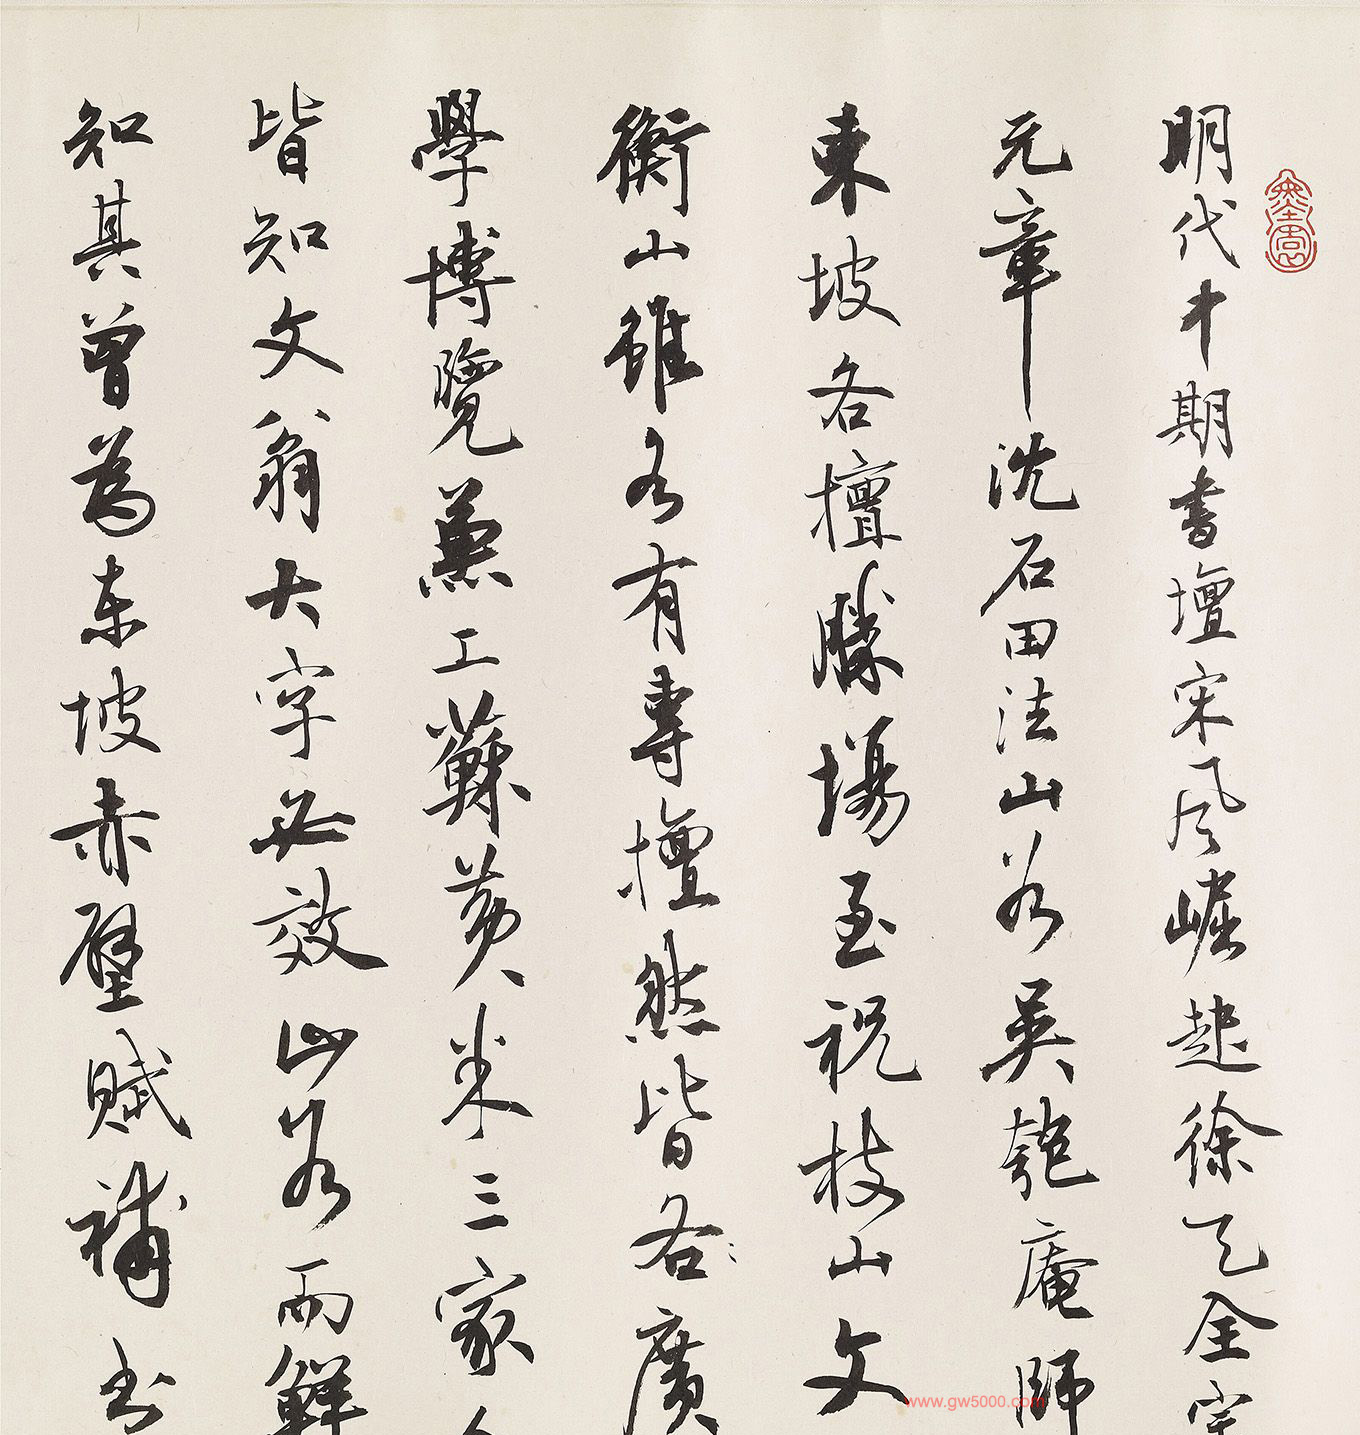 明代中期書壇宋風崛起徐天全宗
元章沈石田法山谷吳匏庵師
東坡各擅勝場至祝枝山文
衡山雖各有專擅然皆各廣
學博覽兼工蘇黃米三家
皆知文翁大字必效山谷而鮮
知其曾為東坡赤壁賦補書
www.gw5000.com